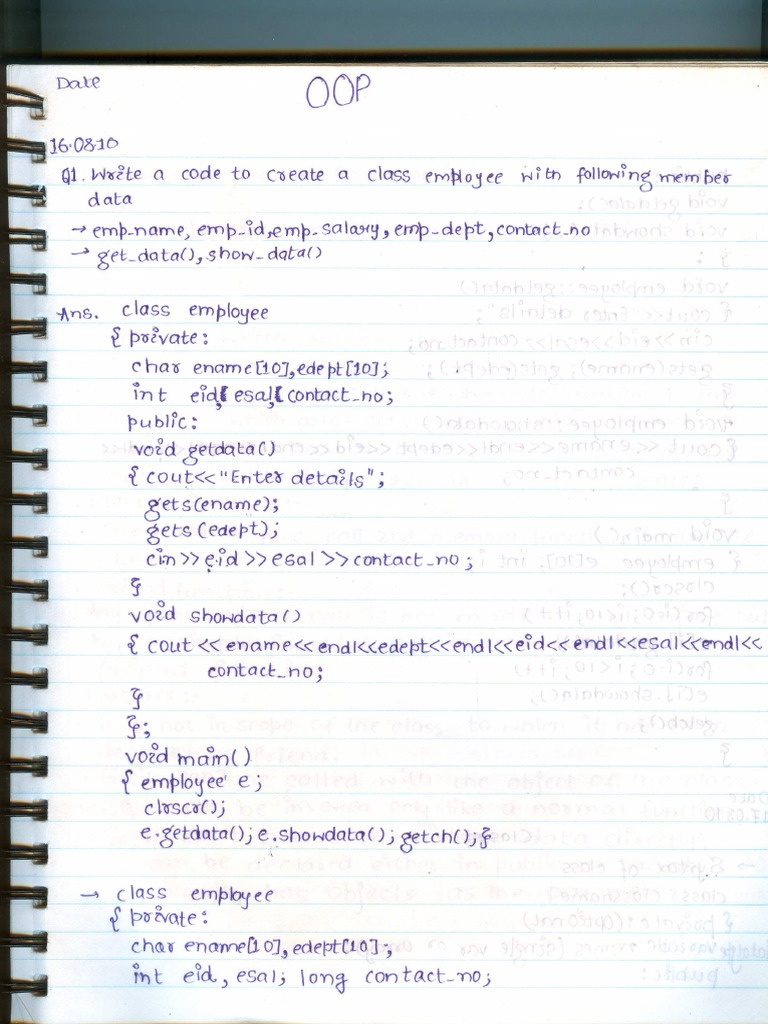 Date
OOP
16.08.10
Q1. Write a code to create a class employee with following member
data
→ emp_name, emp_id, emp_salary, emp_dept, contact_no
→ get_data(), show_data()
Ans. class employee
{ private:
char ename[10], edept[10];
int eid, esal, contact_no;
public:
void getdata()
{ cout<<"Enter details";
gets(ename);
gets(edept);
cin>>eid>>esal>>contact_no;
}
void showdata()
{ cout<<ename<<endl<<edept<<endl<<eid<<endl<<esal<<endl<<
contact_no;
}
};
void main()
{ employee e;
clrscr();
e.getdata(); e.showdata(); getch();}
→ class employee
{ private:
char ename[10], edept[10];
int eid, esal; long contact_no;